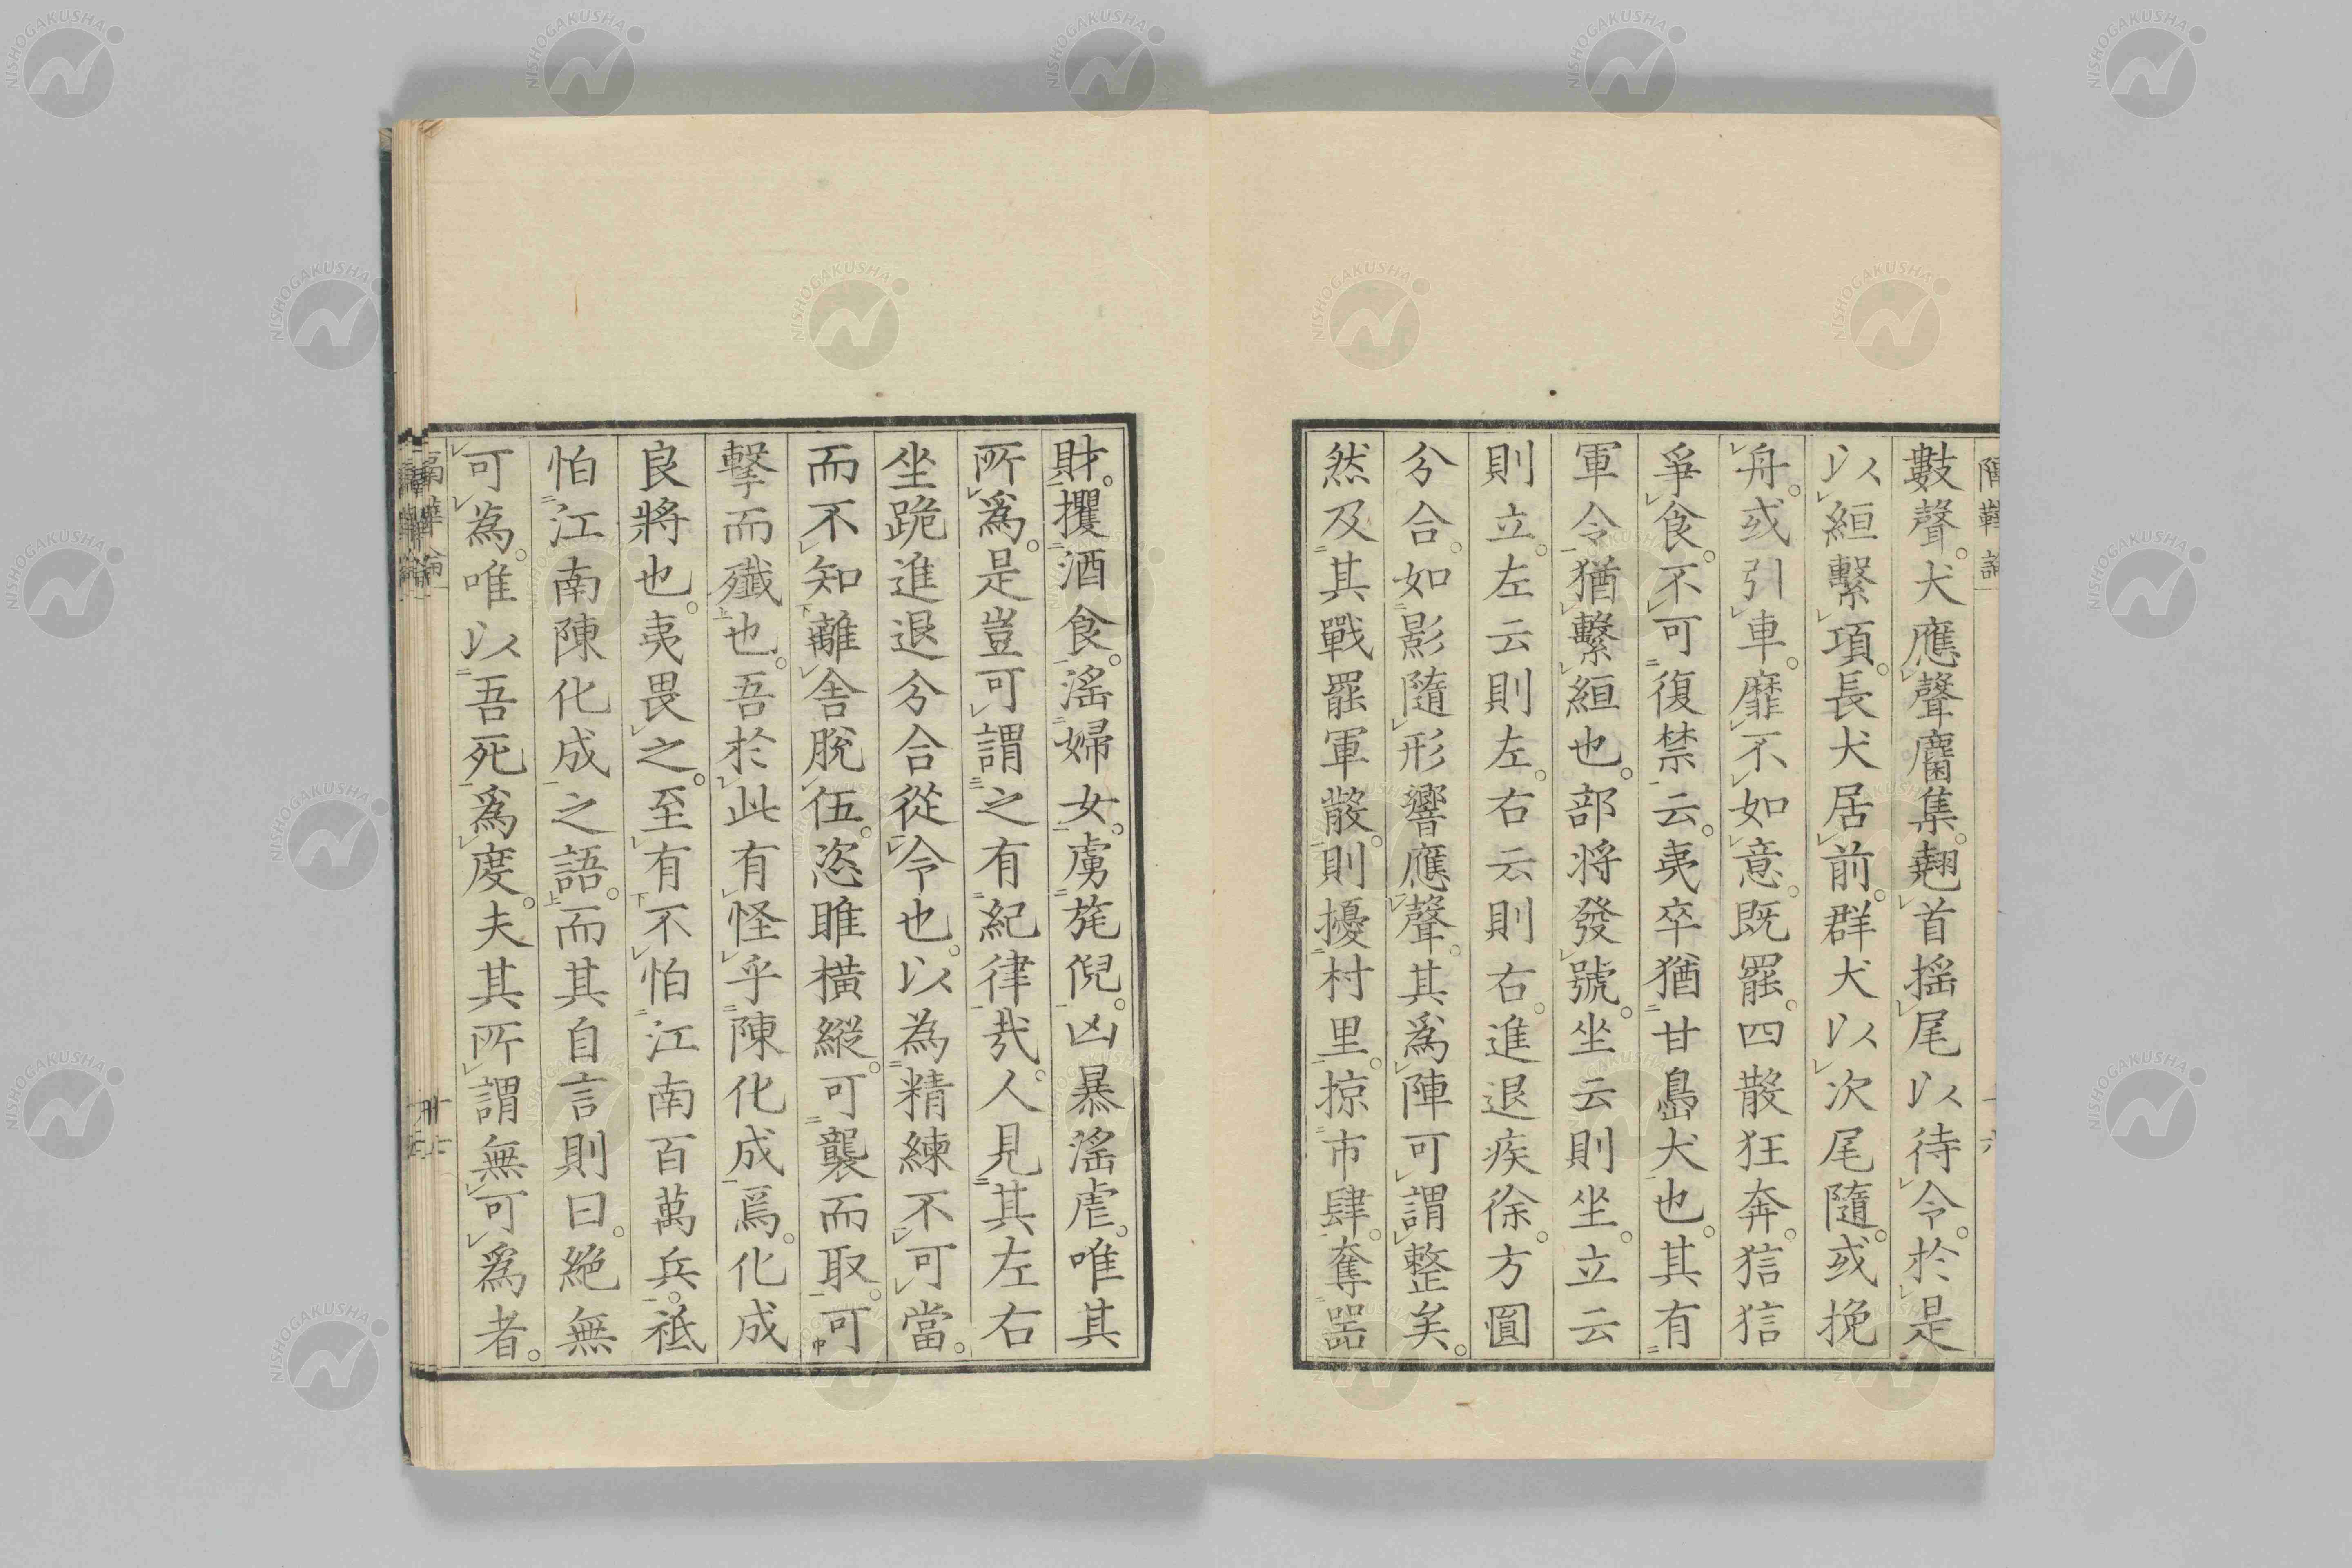 數聲。犬應聲麕集。翹首搖尾以待令。於是
以絙繫項。長犬居前。群犬以次尾隨。或挽
舟。或引車。靡不如意。既罷。四散狂奔。狺狺
爭食。不可復禁云。夷卒猶甘島犬也。其有
軍令猶繫絙也。部将發號。坐云則坐。立云
則立。左云則左。右云則右。進退疾徐。方圓
分合。如影隨形響應聲。其為陣可謂整矣。
然及其戰罷軍散。則擾村里。掠市肆。奪器
財。攫酒食。滛婦女。虜旄倪。凶暴滛虐。唯其
所為。是豈可謂之有紀律哉。人見其左右
坐跪進退分合從令也。以為精練不可當。
而不知離舎脫伍。恣睢橫縱。可襲而取。可
擊而殲也。吾於此有怪乎陳化成焉。化成
良將也。夷畏之。至有不怕江南百萬兵。祗
怕江南陳化成之語。而其自言則曰。絕無
可為。唯以吾死為度。夫其所謂無可為者。
NISHOGAKUSHA